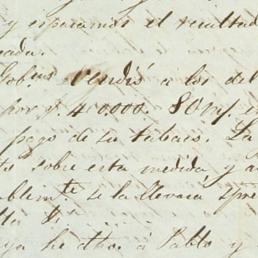 y esperamos el resultad
ada.
Gob.no vendió a los del
por $ 400.000. 80
pago de su tabaco. La
to sobre esta medida y a
blem.te se la llevara
lla
ya he dho. á Pablo y